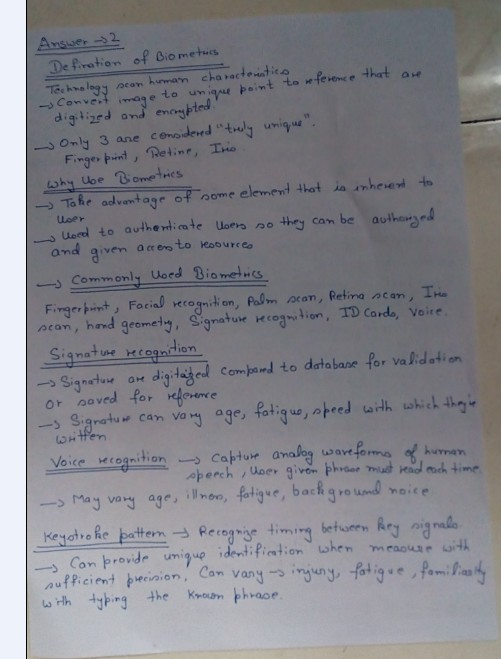 Answer → 2
Defination of Biometrics
Technology scan human characteristics
→ Convert image to unique point to reference that are
digitized and encrypted.
→ Only 3 are considered "truly unique".
Fingerprint, Retina, Iris.
Why Use Biometrics
→ Take advantage of some element that is inherent to
User
→ Used to authenticate Users so they can be authorized
and given access to resources
→ Commonly Used Biometrics
Fingerprint, Facial recognition, Palm scan, Retina scan, Iris
scan, hand geometry, Signature recognition, ID Cards, Voice.
Signature recognition
→ Signature are digitized compared to database for validation
or saved for reference
→ Signature can vary age, fatigue, speed with which they're
written
Voice recognition → Capture analog waveforms of human
speech, User given phrase must read each time.
→ May vary age, illness, fatigue, background noice.
Keystroke pattern → Recognize timing between key signals.
→ Can provide unique identification when measure with
sufficient precision, Can vary → injury, fatigue, familiarity
with typing the known phrase.